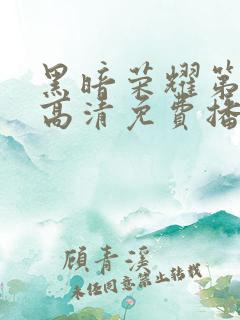 黑暗荣耀第
高清免費播
顾青溪
未经同意禁止转载